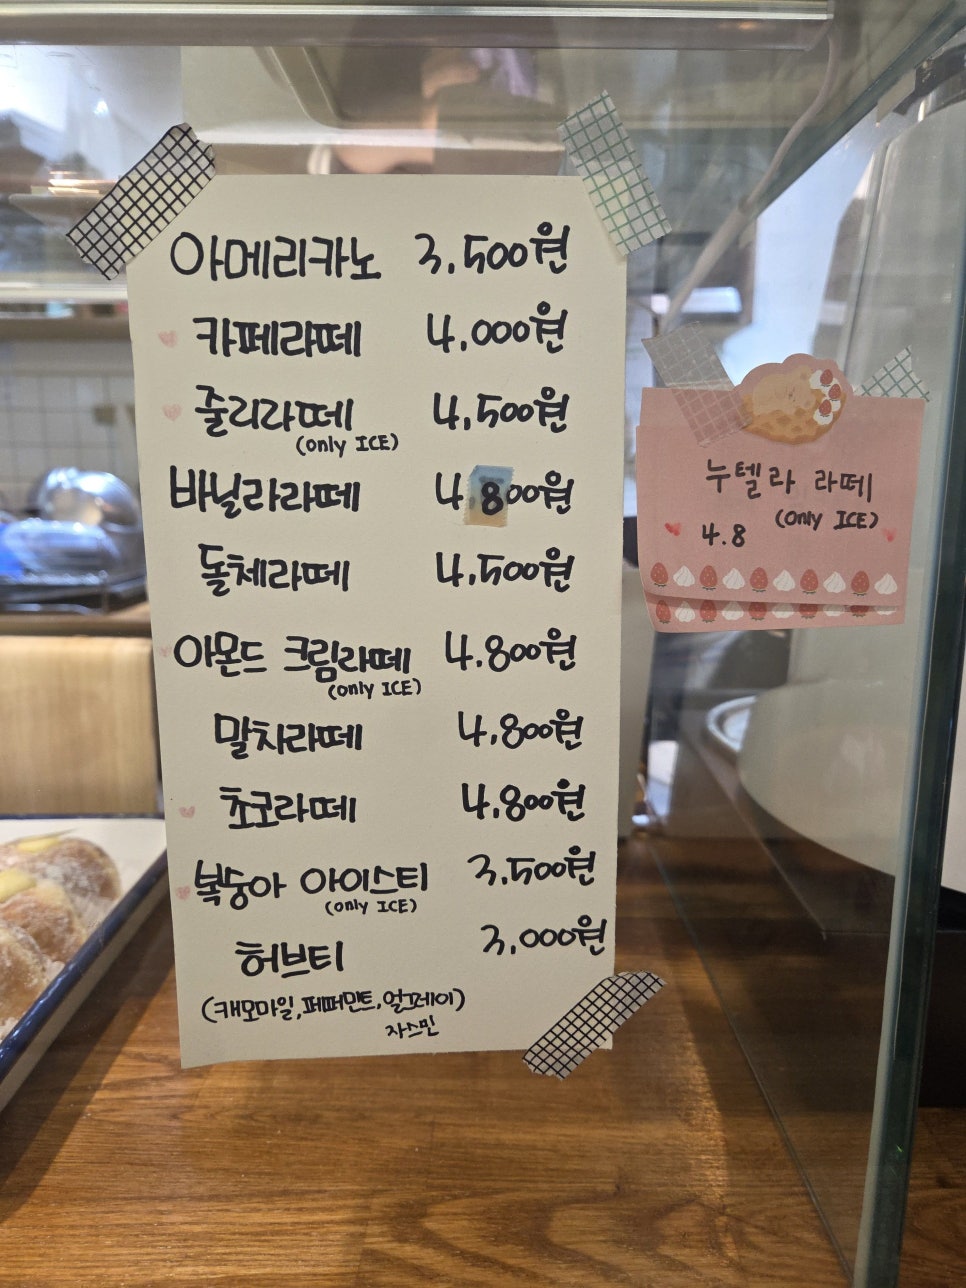 아메리카노 3,500원
카페라떼 4,000원
쥴리라떼 4,500원
(only ICE)
바닐라라떼 4.800원
돌체라떼 4,500원
아몬드 크림라떼 4.800원
(only ICE)
말차라떼 4,800원
초코라떼 4,800원
복숭아 아이스티 3.500원
(only ICE)
허브티 3,000원
(캐모마일,페퍼민트,얼그레이)
자스민
누텔라 라떼
(Only ICE)
4.8